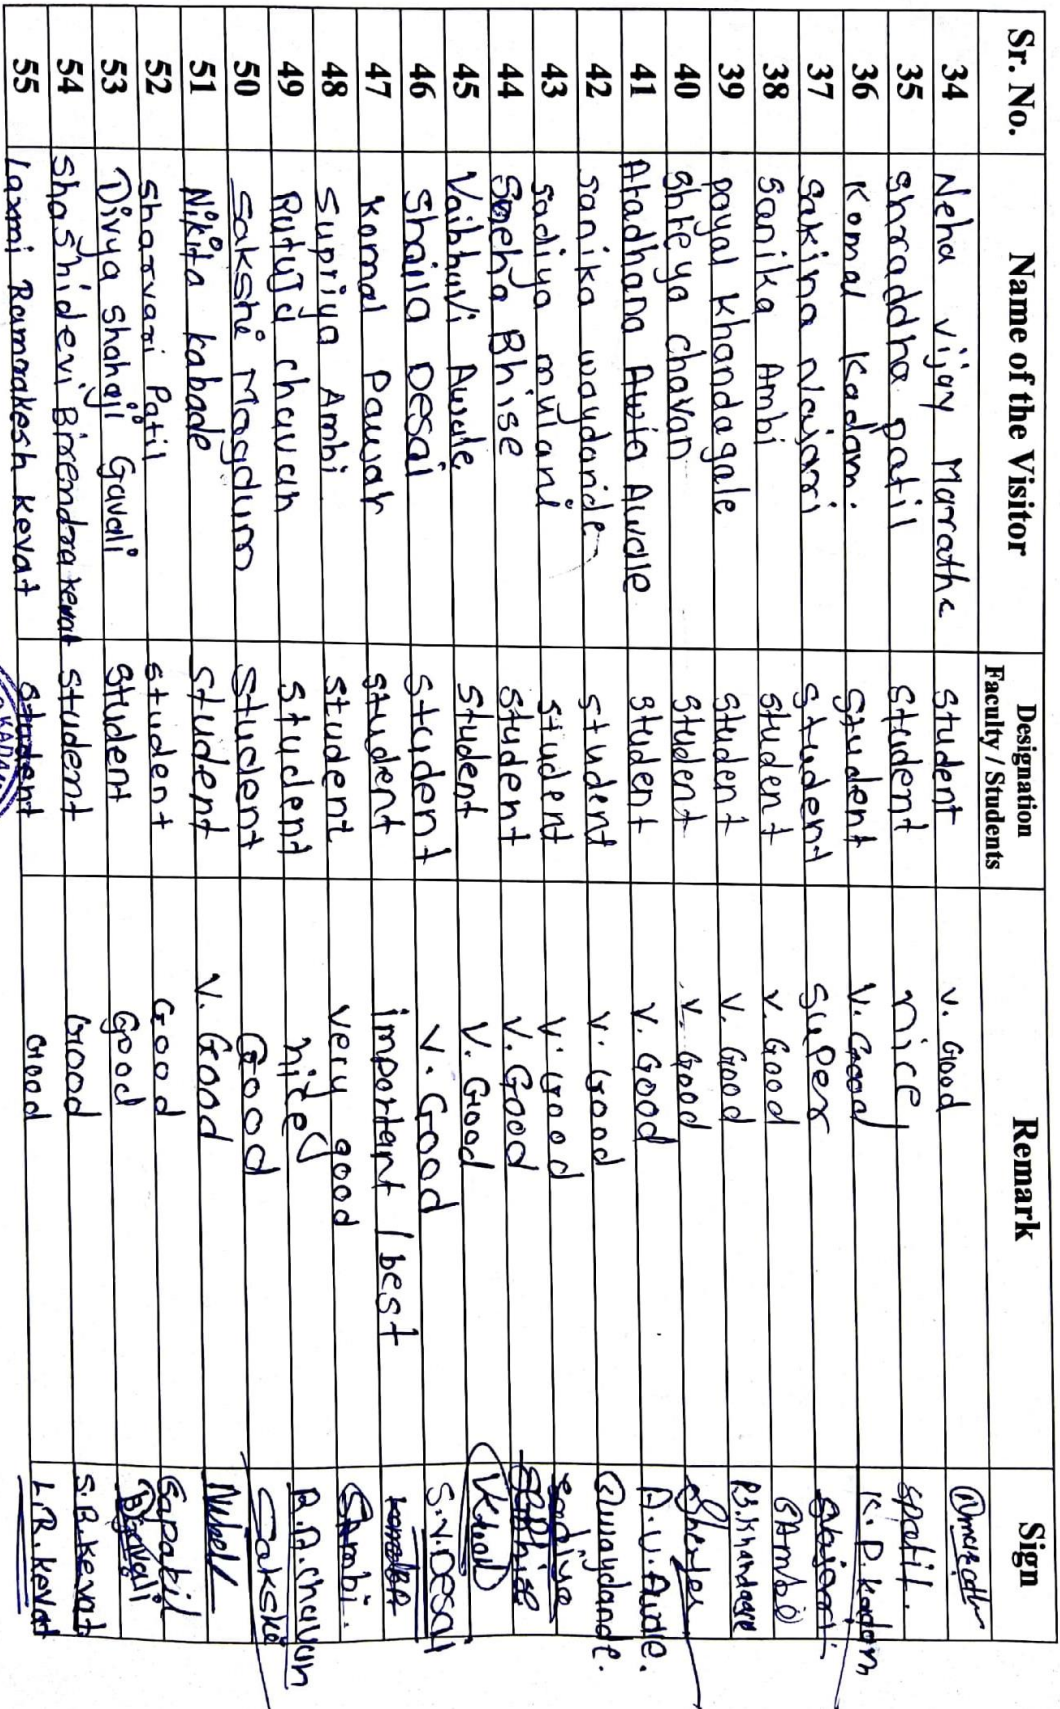 Sr. No. Name of the Visitor Designation Faculty / Students Remark Sign
34 Neha vijay Marathe Student V. Good
35 Shraddha patil Student nice spatil.
36 Komal Kadam. Student V. Good K. P. kadam
37 Sakina Naisari Student Super
38 Sanika Ambi Student V. Good SAmbi
39 payal khandagale Student V. Good P.S.khandagale
40 Shreya chavan Student V. Good
41 Aradhana Awle Student V. Good
42 sanika waydande student V. Good Swaydande.
43 sadiya mulani student V. Good Sadiya
44 Sneha Bhise Student V. Good SBBhise
45 Vaibhavi Awale Student V. Good
46 Shaila Desai Student V. Good S.V.Desai
47 Komal Pawar student important / best
48 Supriya Ambi student very good SAmbi.
49 Rutuja chavan student nice R.A.chavan
50 Sakshi Magdum Student Good Sakshi
51 Nikita kabade student V. Good
52 Sharvari Patil student Good
53 Divya Shahaji Gavali Student Good
54 Shashidevi Birendra kevat Student Good S.B.kevat
55 Laxmi Ramrakesh kevat Student Good L.R.kevat